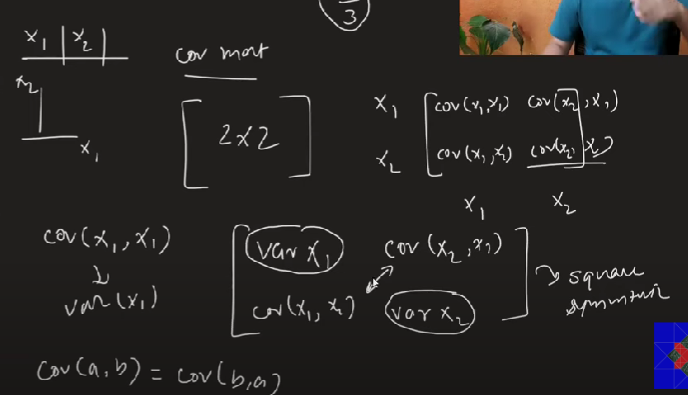 x₁ | x₂ |
3
cov mat
x₂
x₁
[ 2×2 ]
x₁ [ cov(x₁,x₁) cov(x₂,x₁)
x₂ cov(x₁,x₂) cov(x₂,x₂) ]
x₁ x₂
cov(x₁,x₁)
↓
var(x₁)
[ var x₁ cov(x₂,x₁)
cov(x₁,x₂) var x₂ ]
→ square
symmetric
cov(a,b) = cov(b,a)